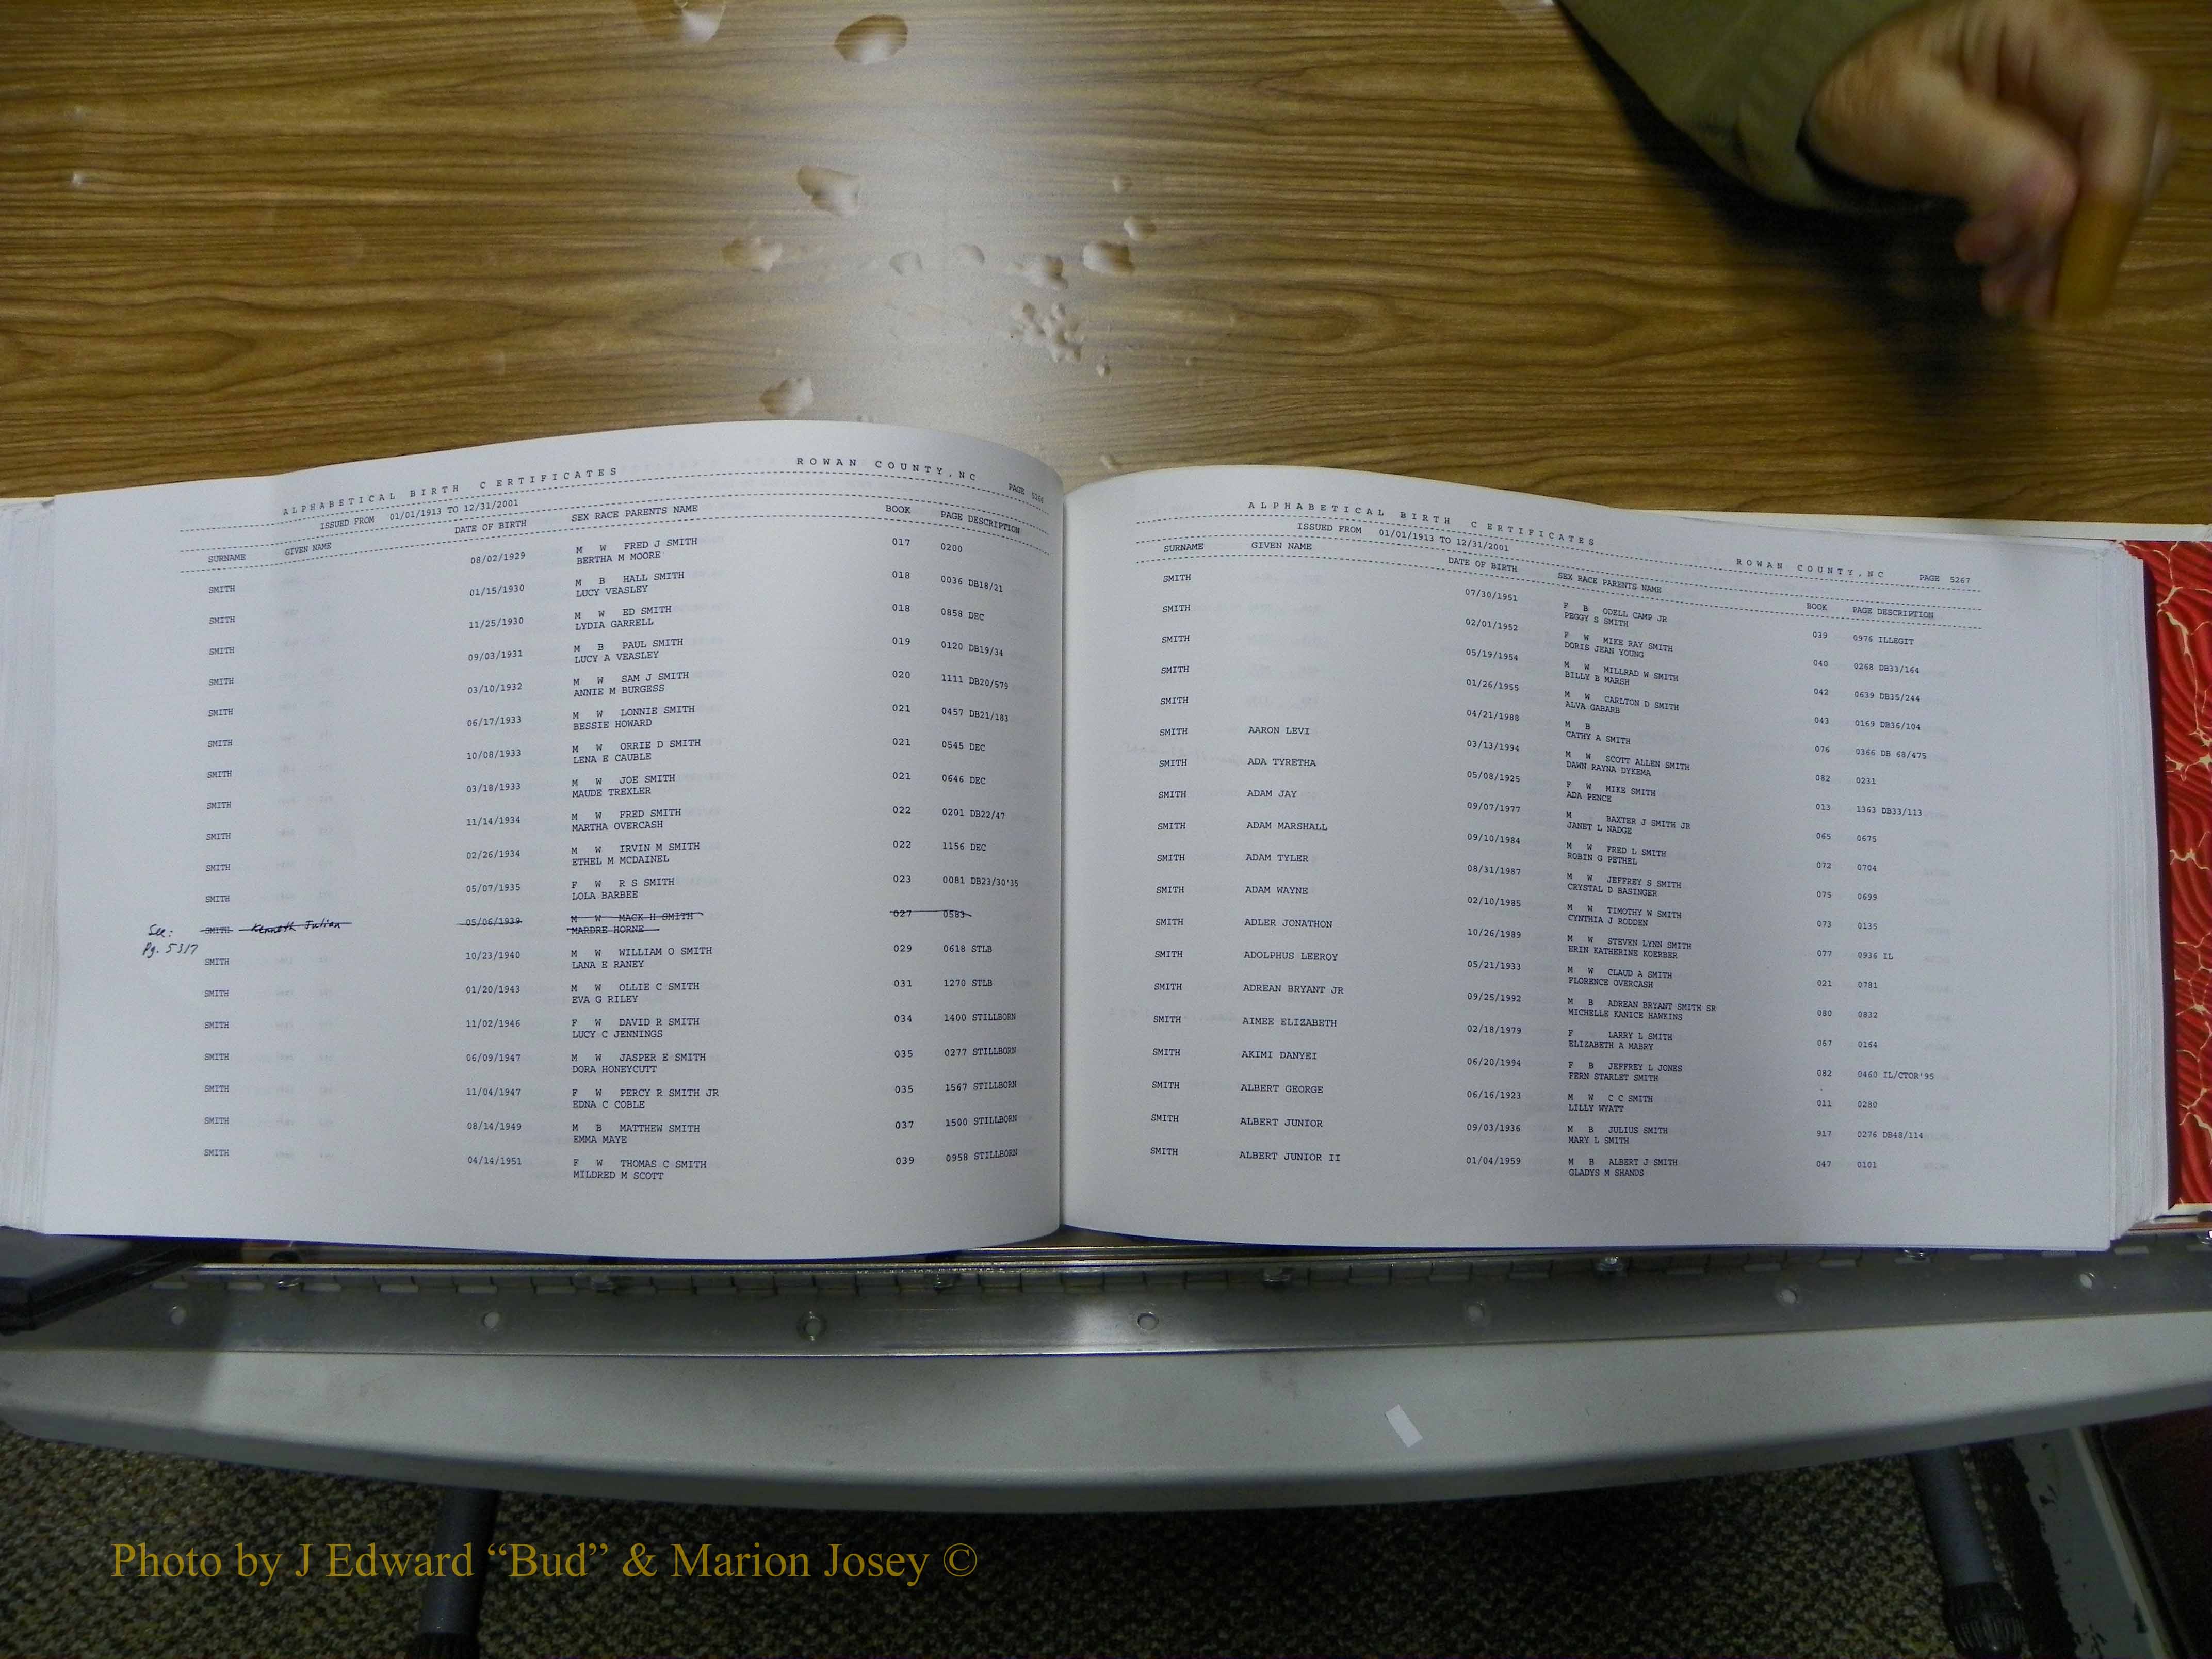 ALPHABETICAL BIRTH CERTIFICATES ROWAN COUNTY,NC PAGE 5266
ISSUED FROM 01/01/1913 TO 12/31/2001
SURNAME GIVEN NAME DATE OF BIRTH SEX RACE PARENTS NAME BOOK PAGE DESCRIPTION
SMITH 08/02/1929 M W FRED J SMITH 017 0200
BERTHA M MOORE
SMITH 01/15/1930 M B HALL SMITH 018 0036 DB18/21
LUCY VEASLEY
SMITH 11/25/1930 M W ED SMITH 018 0858 DEC
LYDIA GARRELL
SMITH 09/03/1931 M B PAUL SMITH 019 0120 DB19/34
LUCY A VEASLEY
SMITH 03/10/1932 M W SAM J SMITH 020 1111 DB20/579
ANNIE M BURGESS
SMITH 06/17/1933 M W LONNIE SMITH 021 0457 DB21/183
BESSIE HOWARD
SMITH 10/08/1933 M W ORRIE D SMITH 021 0545 DEC
LENA E CAUBLE
SMITH 03/18/1933 M W JOE SMITH 021 0646 DEC
MAUDE TREXLER
SMITH 11/14/1934 M W FRED SMITH 022 0201 DB22/47
MARTHA OVERCASH
SMITH 02/26/1934 M W IRVIN M SMITH 022 1156 DEC
ETHEL M MCDAINEL
SMITH 05/07/1935 F W R S SMITH 023 0081 DB23/30'35
LOLA BARBEE
See: SMITH Kenneth Julian 05/06/1939 M W MACK H SMITH 027 0583
Pg. 5317 MARDRE HORNE
SMITH 10/23/1940 M W WILLIAM O SMITH 029 0618 STLB
LANA E RANEY
SMITH 01/20/1943 M W OLLIE C SMITH 031 1270 STLB
EVA G RILEY
SMITH 11/02/1946 F W DAVID R SMITH 034 1400 STILLBORN
LUCY C JENNINGS
SMITH 06/09/1947 M W JASPER E SMITH 035 0277 STILLBORN
DORA HONEYCUTT
SMITH 11/04/1947 F W PERCY R SMITH JR 035 1567 STILLBORN
EDNA C COBLE
SMITH 08/14/1949 M B MATTHEW SMITH 037 1500 STILLBORN
EMMA MAYE
SMITH 04/14/1951 F W THOMAS C SMITH 039 0958 STILLBORN
MILDRED M SCOTT
ALPHABETICAL BIRTH CERTIFICATES ROWAN COUNTY,NC PAGE 5267
ISSUED FROM 01/01/1913 TO 12/31/2001
SURNAME GIVEN NAME DATE OF BIRTH SEX RACE PARENTS NAME BOOK PAGE DESCRIPTION
SMITH 07/30/1951 F B ODELL CAMP JR 039 0976 ILLEGIT
PEGGY S SMITH
SMITH 02/01/1952 F W MIKE RAY SMITH 040 0268 DB33/164
DORIS JEAN YOUNG
SMITH 05/19/1954 M W MILLRAD W SMITH 042 0639 DB35/244
BILLY B MARSH
SMITH 01/26/1955 M W CARLTON D SMITH 043 0169 DB36/104
ALVA GABARB
SMITH 04/21/1988 M B 076 0366 DB 68/475
CATHY A SMITH
SMITH AARON LEVI 03/13/1994 M W SCOTT ALLEN SMITH 082 0231
DAWN RAYNA DYKEMA
SMITH ADA TYRETHA 05/08/1925 F W MIKE SMITH 013 1363 DB33/113
ADA PENCE
SMITH ADAM JAY 09/07/1977 M BAXTER J SMITH JR 065 0675
JANET L NADGE
SMITH ADAM MARSHALL 09/10/1984 M W FRED L SMITH 072 0704
ROBIN G PETHEL
SMITH ADAM TYLER 08/31/1987 M W JEFFREY S SMITH 075 0699
CRYSTAL D BASINGER
SMITH ADAM WAYNE 02/10/1985 M W TIMOTHY W SMITH 073 0135
CYNTHIA J RODDEN
SMITH ADLER JONATHON 10/26/1989 M W STEVEN LYNN SMITH 077 0936 IL
ERIN KATHERINE KOERBER
SMITH ADOLPHUS LEEROY 05/21/1933 M W CLAUD A SMITH 021 0781
FLORENCE OVERCASH
SMITH ADREAN BRYANT JR 09/25/1992 M B ADREAN BRYANT SMITH SR 080 0832
MICHELLE KANICE HAWKINS
SMITH AIMEE ELIZABETH 02/18/1979 F LARRY L SMITH 067 0164
ELIZABETH A MABRY
SMITH AKIMI DANYEI 06/20/1994 F B JEFFREY L JONES 082 0460 IL/CTOR'95
FERN STARLET SMITH
SMITH ALBERT GEORGE 06/16/1923 M W C C SMITH 011 0280
LILLY WYATT
SMITH ALBERT JUNIOR 09/03/1936 M B JULIUS SMITH 917 0276 DB48/114
MARY L SMITH
SMITH ALBERT JUNIOR II 01/04/1959 M B ALBERT J SMITH 047 0101
GLADYS M SHANDS
Photo by J Edward “Bud” & Marion Josey ©